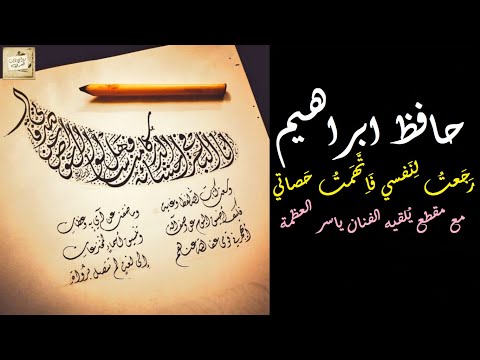 حافظ ابراهيم
رَجَعتُ لِنَفسي فَاِتَّهَمتُ حَصاتي
مع مقطع يُلقيه الفنان ياسر العظمة
انا البحر في احشائه الدر كامن فهل ساءلوا الغواص عن صدفاتي
وسعت كتاب الله لفظا وغاية
وما ضقت عن آي به وعظات
فكيف أضيق اليوم عن وصف آلة
وتنسيق أسماء لمخترعات
أيهجرني قومي عفا الله عنهم
إلى لغة لم تتصل برواة